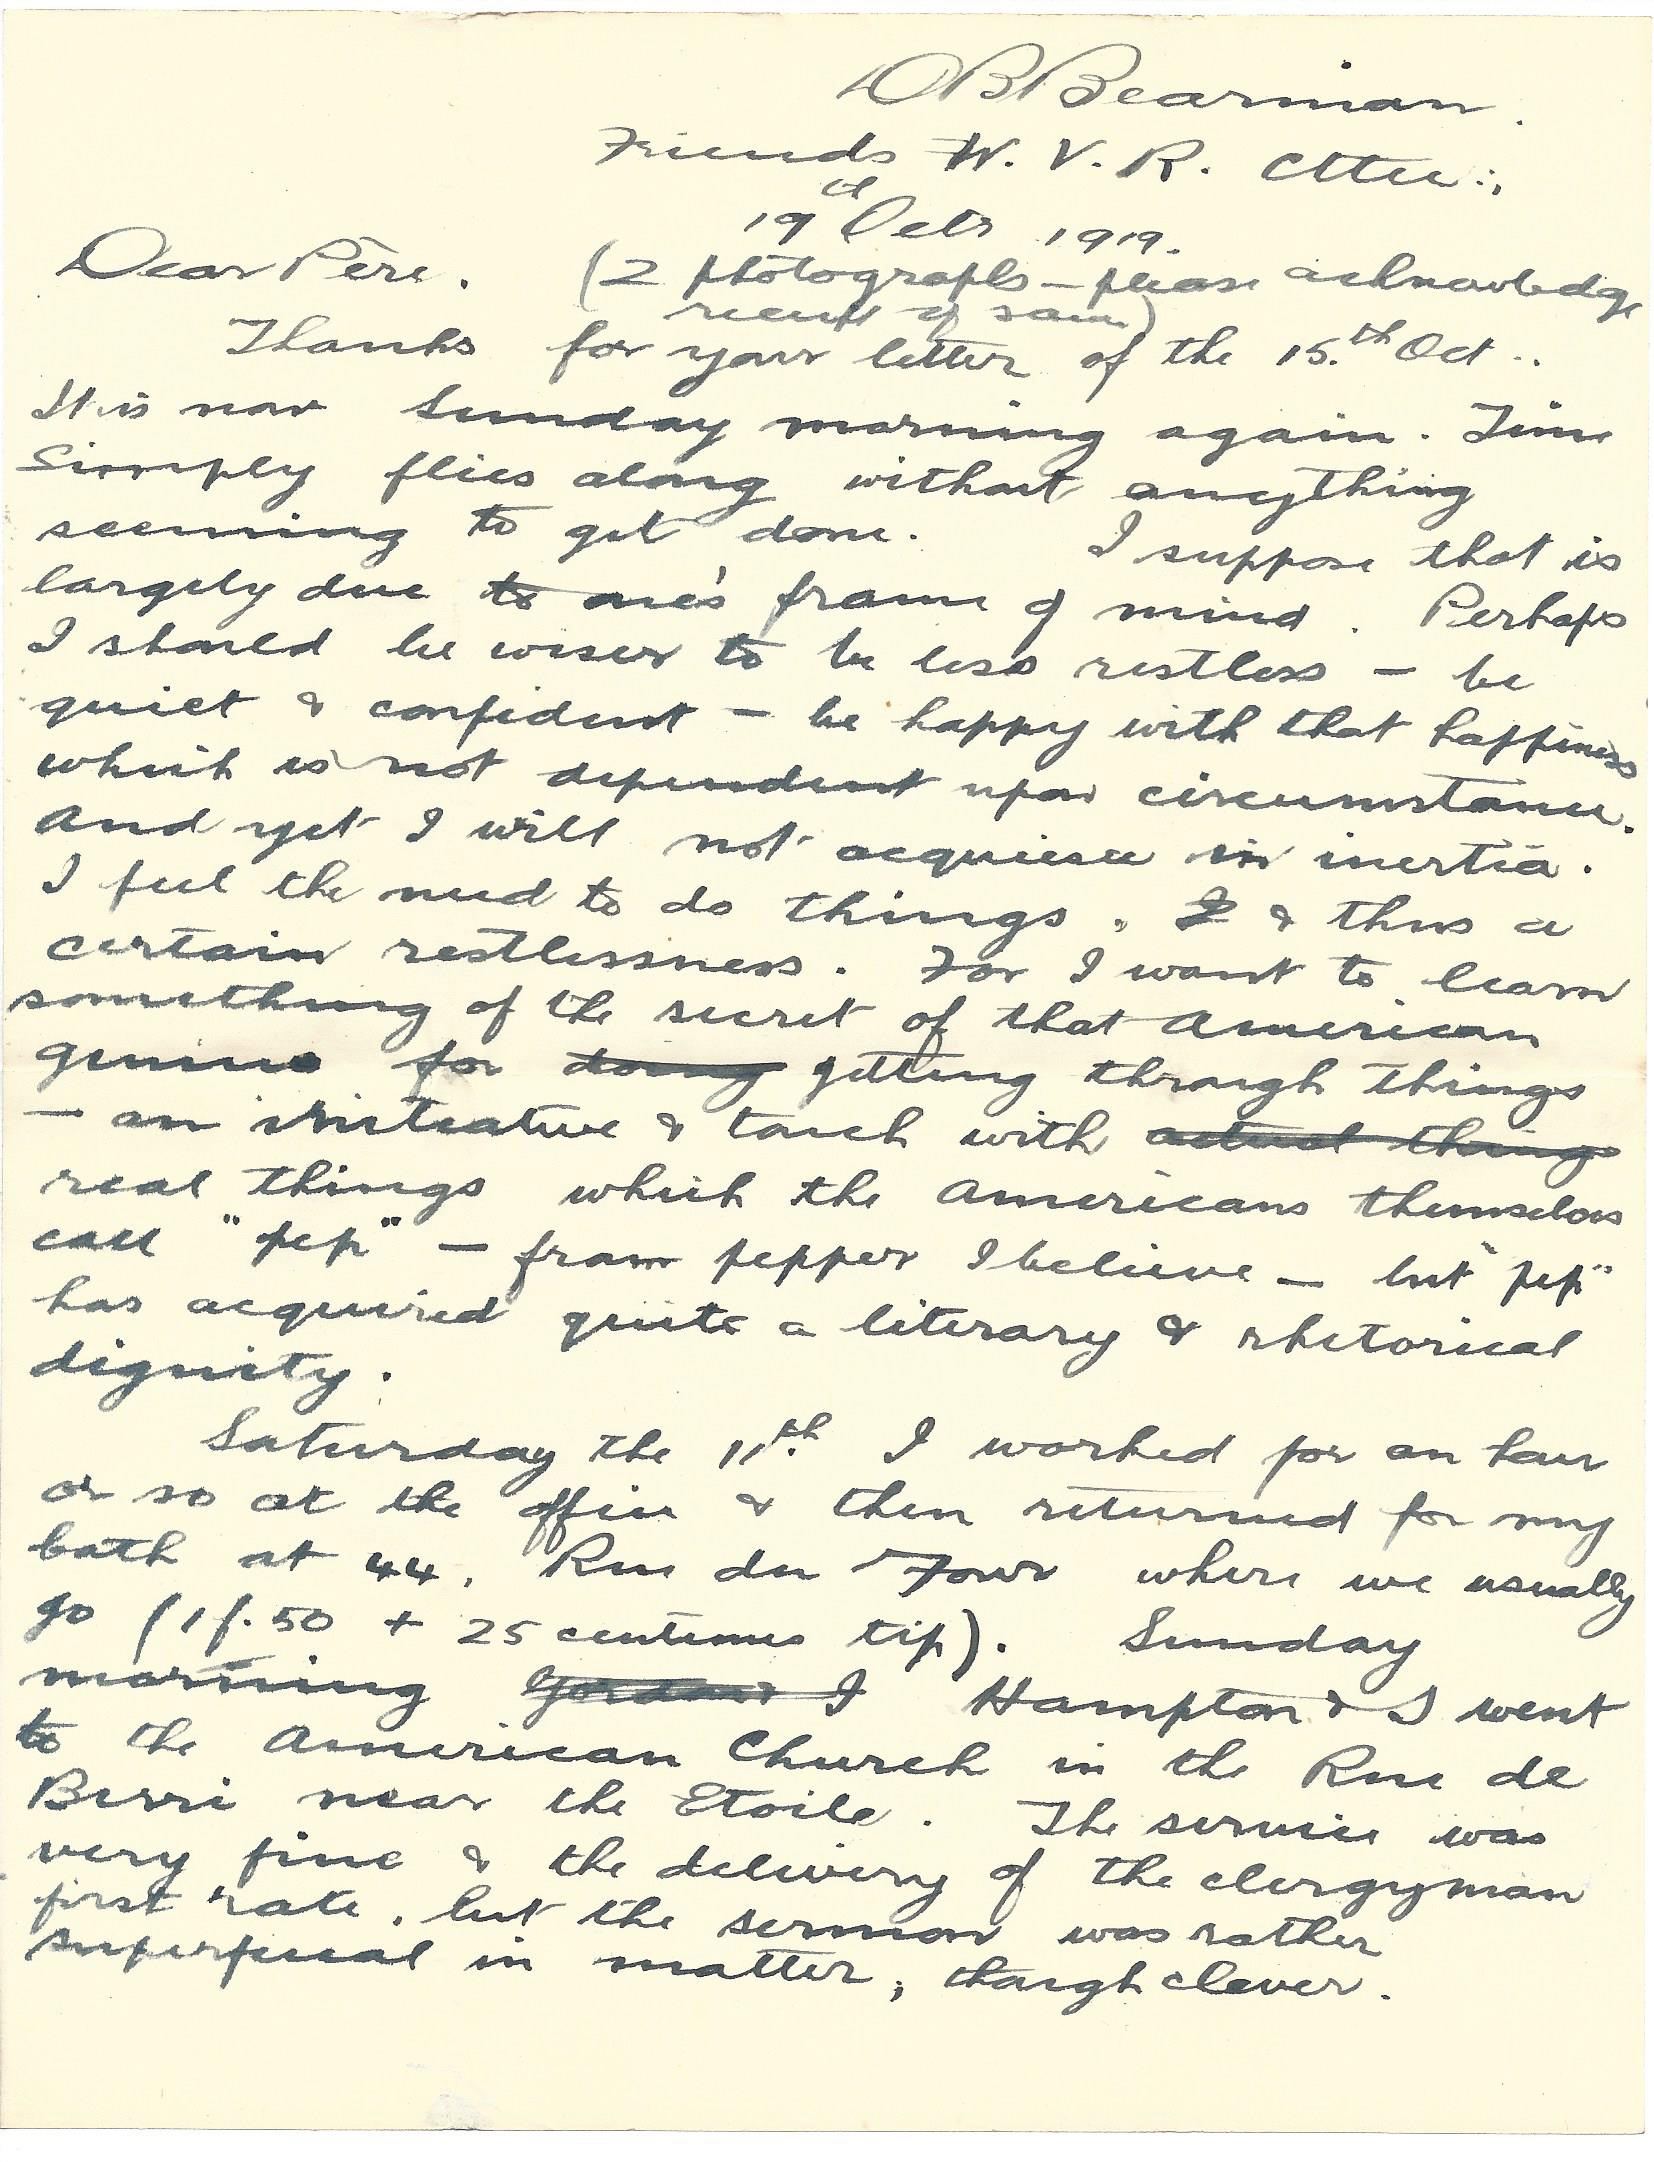 D B Bearman.
Friends W. V. R. Cttee.
19th Octr 1919.
Dear Père. (2 photographs – please acknowledge
receipt of same)
Thanks for your letter of the 15.th Oct..
It is now Sunday morning again. Time
simply flies along without anything
seeming to get done. I suppose that is
largely due to one's frame of mind. Perhaps
I should be wiser to be less restless – be
quiet & confident – be happy with that happiness
which is not dependent upon circumstance.
And yet I will not acquiesce in inertia.
I feel the need to do things, I & thus a
certain restlessness. For I want to learn
something of the secret of that American
genius for doing getting through things
– an initiative & touch with actual things
real things which the Americans themselves
call "pep" – from pepper I believe – but "pep"
has acquired quite a literary & rhetorical
dignity.
Saturday the 11th. I worked for an hour
or so at the office & then returned for my
bath at 44, Rue du Four where we usually
go (1 f. 50 + 25 centimes tip). Sunday
morning Gordon & I Hampton & I went
to the American Church in the Rue de
Berri near the Etoile. The service was
very fine & the delivery of the clergyman
first rate, but the sermon was rather
superficial in matter, though clever.